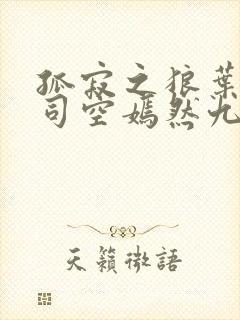 孤寂之狼葉
司空嫣然九
天籟微語